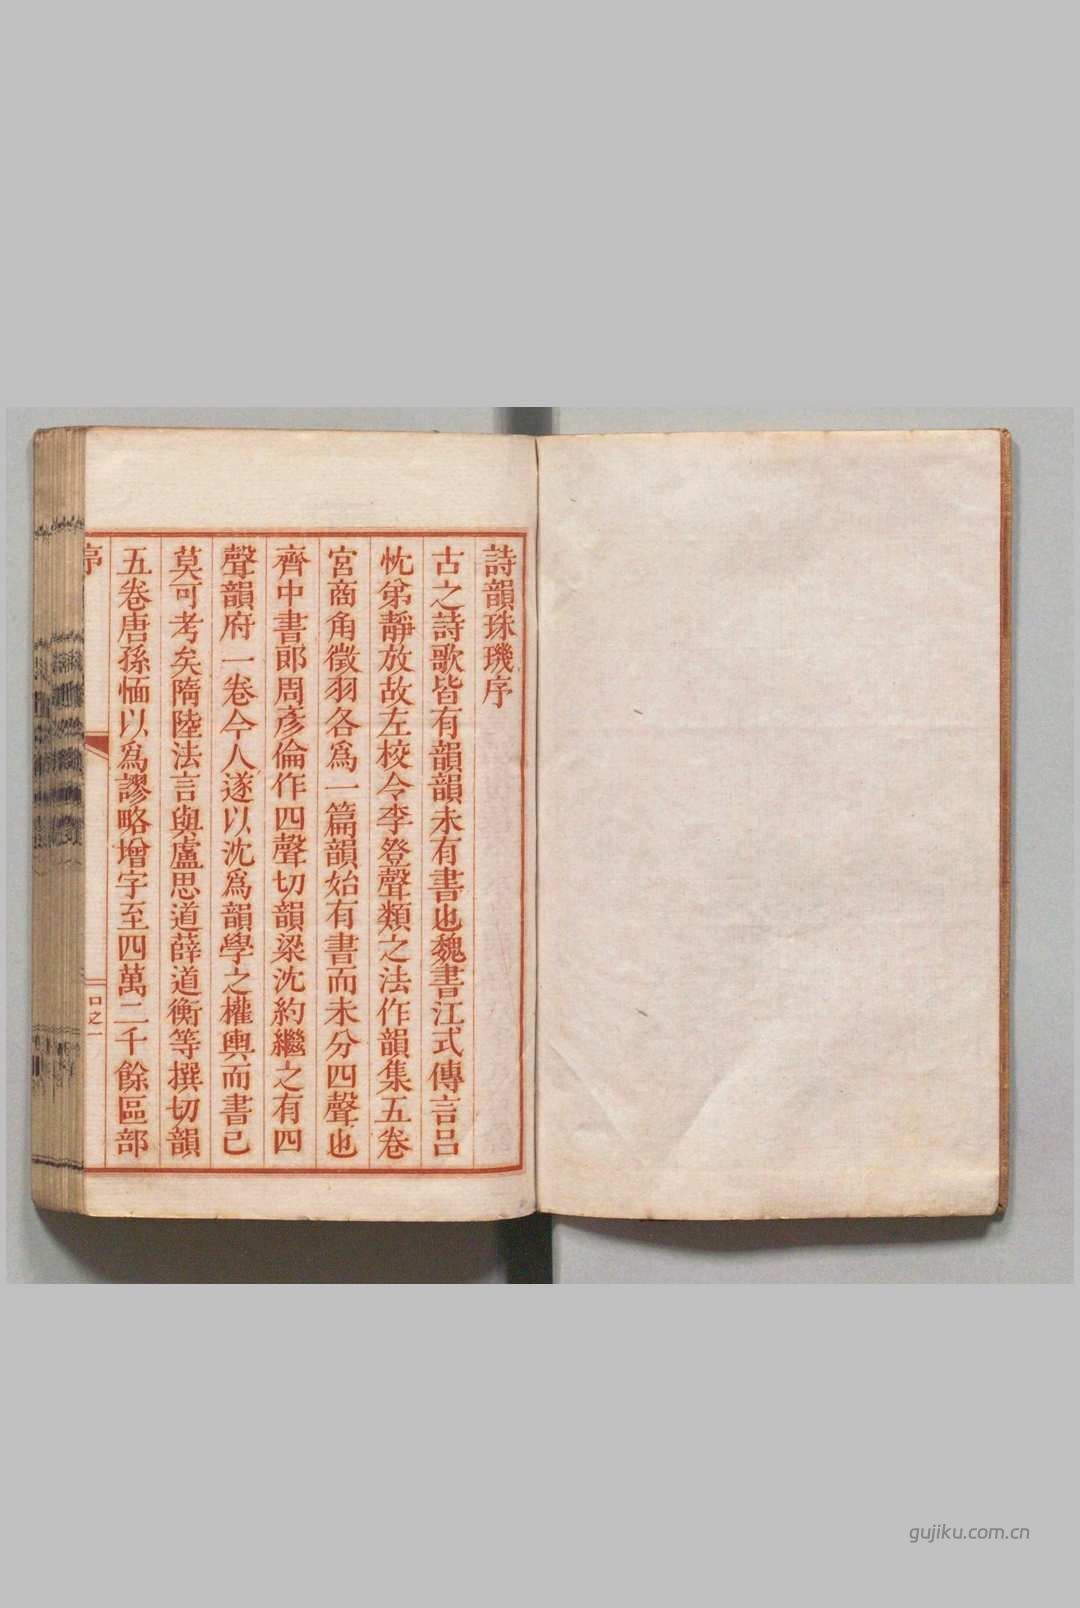 詩韻珠璣序
古之詩歌皆有韻韻未有書也魏書江式傳言呂
忱弟靜放故左校令李登聲類之法作韻集五卷
宮商角徵羽各爲一篇韻始有書而未分四聲也
齊中書郎周彥倫作四聲切韻梁沈約繼之有四
聲韻府一卷今人遂以沈爲韻學之權輿而書已
莫可考矣隋陸法言與盧思道薛道衡等撰切韻
五卷唐孫愐以爲謬略增字至四萬二千餘區部
序
口之一
gujiku.com.cn